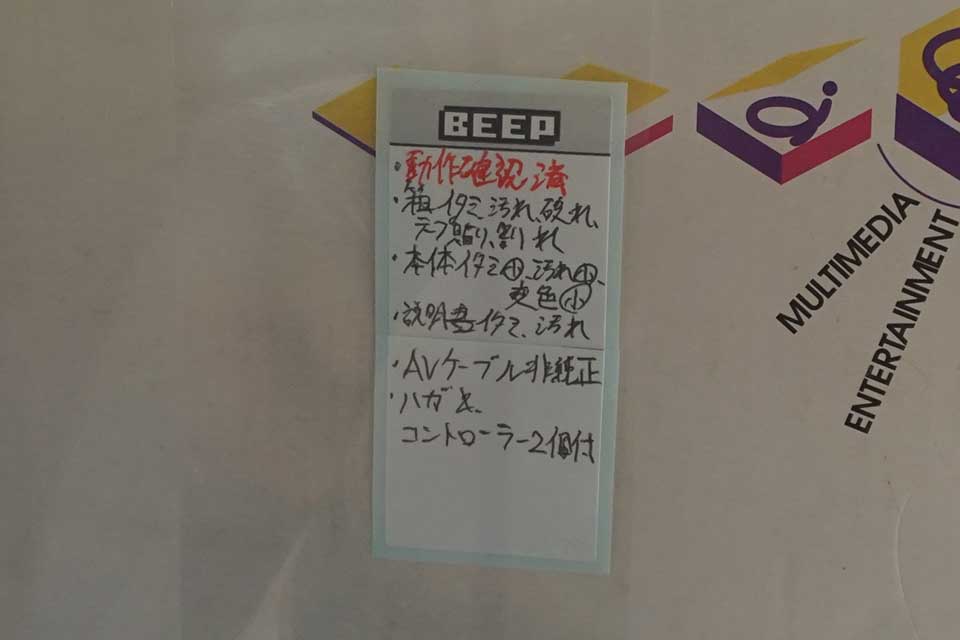 BEEP
・動作確認済
・箱イタミ、汚れ、破れ、
テープ貼り、割れ
・本体イタミ小、汚れ小、
変色小
・説明書イタミ、汚れ
・AVケーブル非純正
・ハガキ、
コントローラー2個付
MULTIMEDIA
ENTERTAINMENT